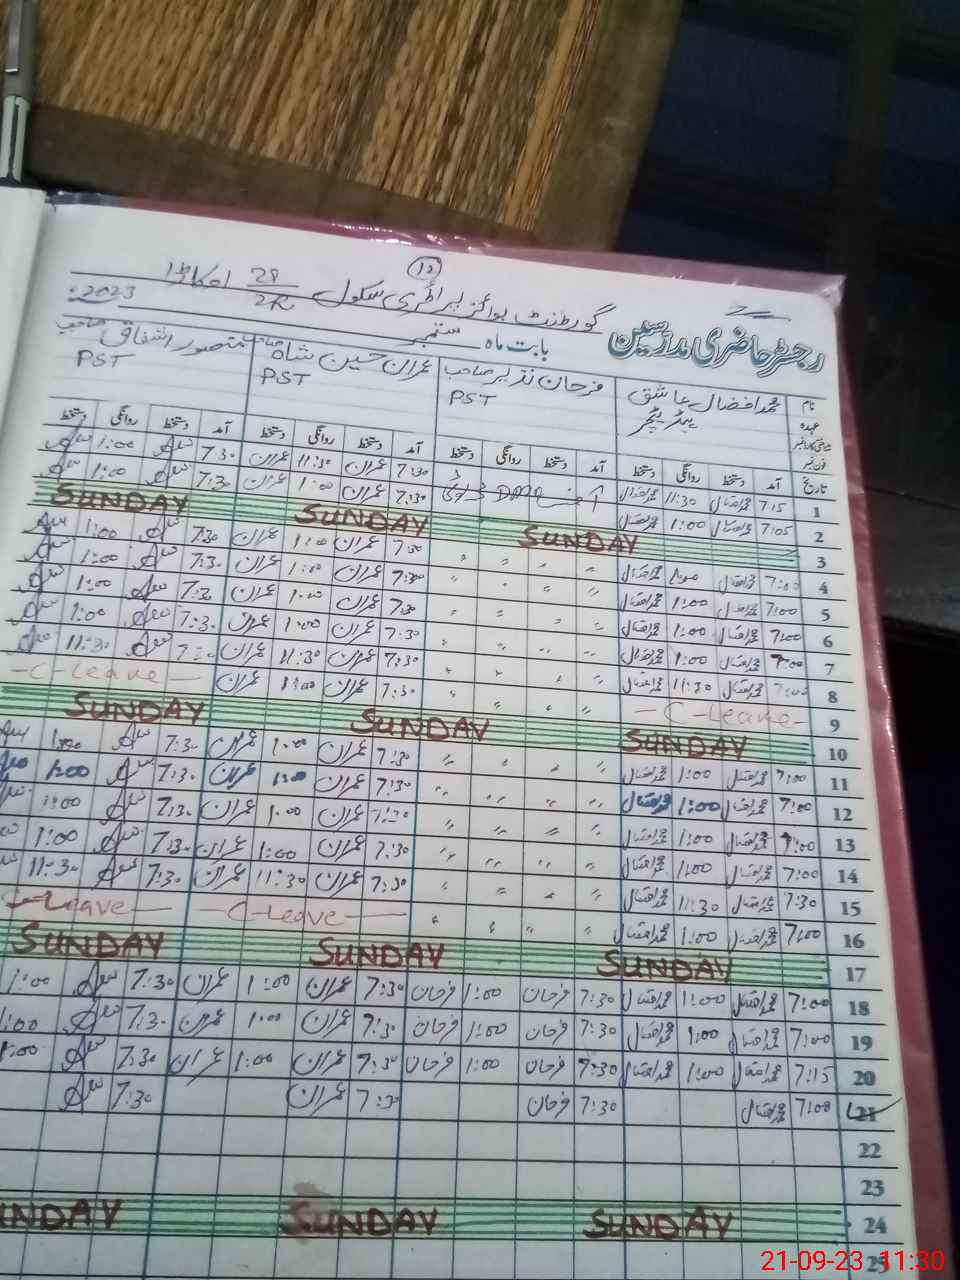 12
گورنمنٹ بوائز پرائمری سکول 28/2R اوکاڑا
رجسٹر حاضری مدرسین
بابت ماہ ستمبر 2023
نام محمد افضال عاشق فرحان نذیر صاحب عمران حسین شاہ صاحب منصور اشفاق صاحب
عہدہ ہیڈ ٹیچر PST PST PST
تاریخ آمد دستخط روانگی دستخط آمد دستخط روانگی دستخط آمد دستخط روانگی دستخط آمد دستخط روانگی دستخط
1 7:15 محمد افضال 11:30 محمد افضال 7:30 عمران 11:30 عمران 7:30 1:00
2 7:05 محمد افضال 1:00 محمد افضال 7:30 عمران 1:00 عمران 7:30 1:00
3 SUNDAY SUNDAY SUNDAY
4 7:00 محمد افضال 1:00 محمد افضال " " " " 7:30 عمران 1:00 عمران 7:30 1:00
5 7:00 محمد افضال 1:00 محمد افضال " " " " 7:30 عمران 1:00 عمران 7:30 1:00
6 7:00 محمد افضال 1:00 محمد افضال " " " " 7:30 عمران 1:00 عمران 7:30 1:00
7 7:00 محمد افضال 1:00 محمد افضال " " " " 7:30 عمران 1:00 عمران 7:30 1:00
8 7:00 محمد افضال 11:30 محمد افضال " " " " 7:30 عمران 11:30 عمران 7:30 11:30
9 -C-Leave- " " " " 7:30 عمران 1:00 عمران -C-Leave-
10 SUNDAY SUNDAY SUNDAY
11 7:00 محمد افضال 1:00 محمد افضال " " " " 7:30 عمران 1:00 عمران 7:30 1:00
12 7:00 محمد افضال 1:00 محمد افضال " " " " 7:30 عمران 1:00 عمران 7:30 1:00
13 7:00 محمد افضال 1:00 محمد افضال " " " " 7:30 عمران 1:00 عمران 7:30 1:00
14 7:00 محمد افضال 1:00 محمد افضال " " " " 7:30 عمران 1:00 عمران 7:30 1:00
15 7:30 محمد افضال 11:30 محمد افضال " " " " 7:30 عمران 11:30 عمران 7:30 11:30
16 7:00 محمد افضال 1:00 محمد افضال " " " " C-Leave C-Leave
17 SUNDAY SUNDAY SUNDAY
18 7:00 محمد افضال 1:00 محمد افضال 7:30 فرحان 1:00 فرحان 7:30 عمران 1:00 عمران 7:30 1:00
19 7:00 محمد افضال 1:00 محمد افضال 7:30 فرحان 1:00 فرحان 7:30 عمران 1:00 عمران 7:30 1:00
20 7:15 محمد افضال 1:00 محمد افضال 7:30 فرحان 1:00 فرحان 7:30 عمران 1:00 عمران 7:30 1:00
21 7:00 محمد افضال 7:30 فرحان 7:30 عمران 7:30
22
23
24 SUNDAY SUNDAY UNDAY
25
21-09-23 11:30